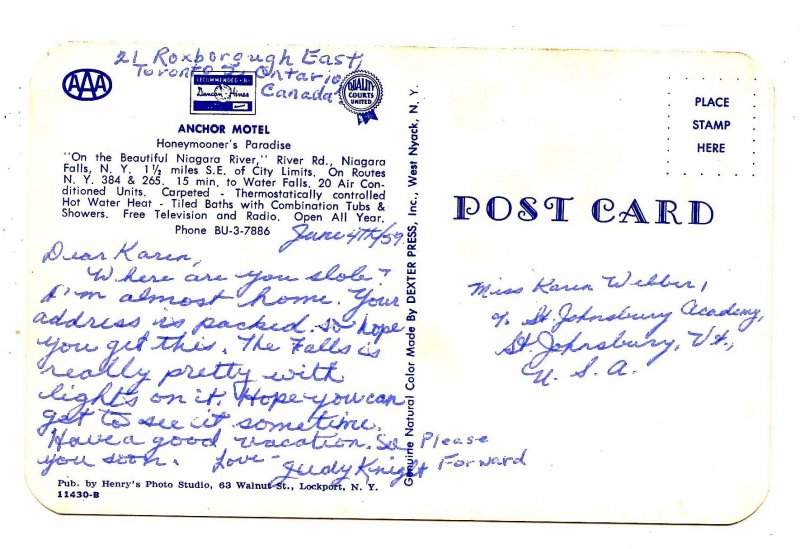 21 Roxborough East,
Toronto 7, Ontario
Canada
AAA
RECOMMENDED BY
Duncan Hines
QUALITY
COURTS
UNITED
ANCHOR MOTEL
Honeymooner's Paradise
"On the Beautiful Niagara River," River Rd., Niagara
Falls, N. Y. 1½ miles S.E. of City Limits. On Routes
N. Y. 384 & 265. 15 min. to Water Falls. 20 Air Con-
ditioned Units. Carpeted - Thermostatically controlled
Hot Water Heat - Tiled Baths with Combination Tubs &
Showers. Free Television and Radio. Open All Year.
Phone BU-3-7886
June 4th/59.
Dear Karen,
Where are you slole?
I'm almost home. Your
address is packed so hope
you get this. The Falls is
really pretty with
lights on it. Hope you can
get to see it sometime.
Have a good vacation. See
you soon. Love -
Judy Knight
Please
Forward
Pub. by Henry's Photo Studio, 63 Walnut St., Lockport, N. Y.
11430-B
Genuine Natural Color Made By DEXTER PRESS, Inc., West Nyack, N. Y.
PLACE
STAMP
HERE
POST CARD
Miss Karen Webber,
% St. Johnsbury Academy,
St. Johnsbury, Vt.,
U. S. A.